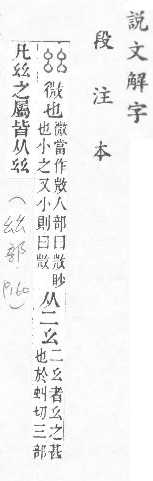 說文解字
段注本
𢆶微也微當作𢼸人部曰𢼸眇
也小之又小則曰𢼸从二幺二幺者幺之甚
也於虯切三部
凡𢆶之屬皆从𢆶
(𢆶部 P160)